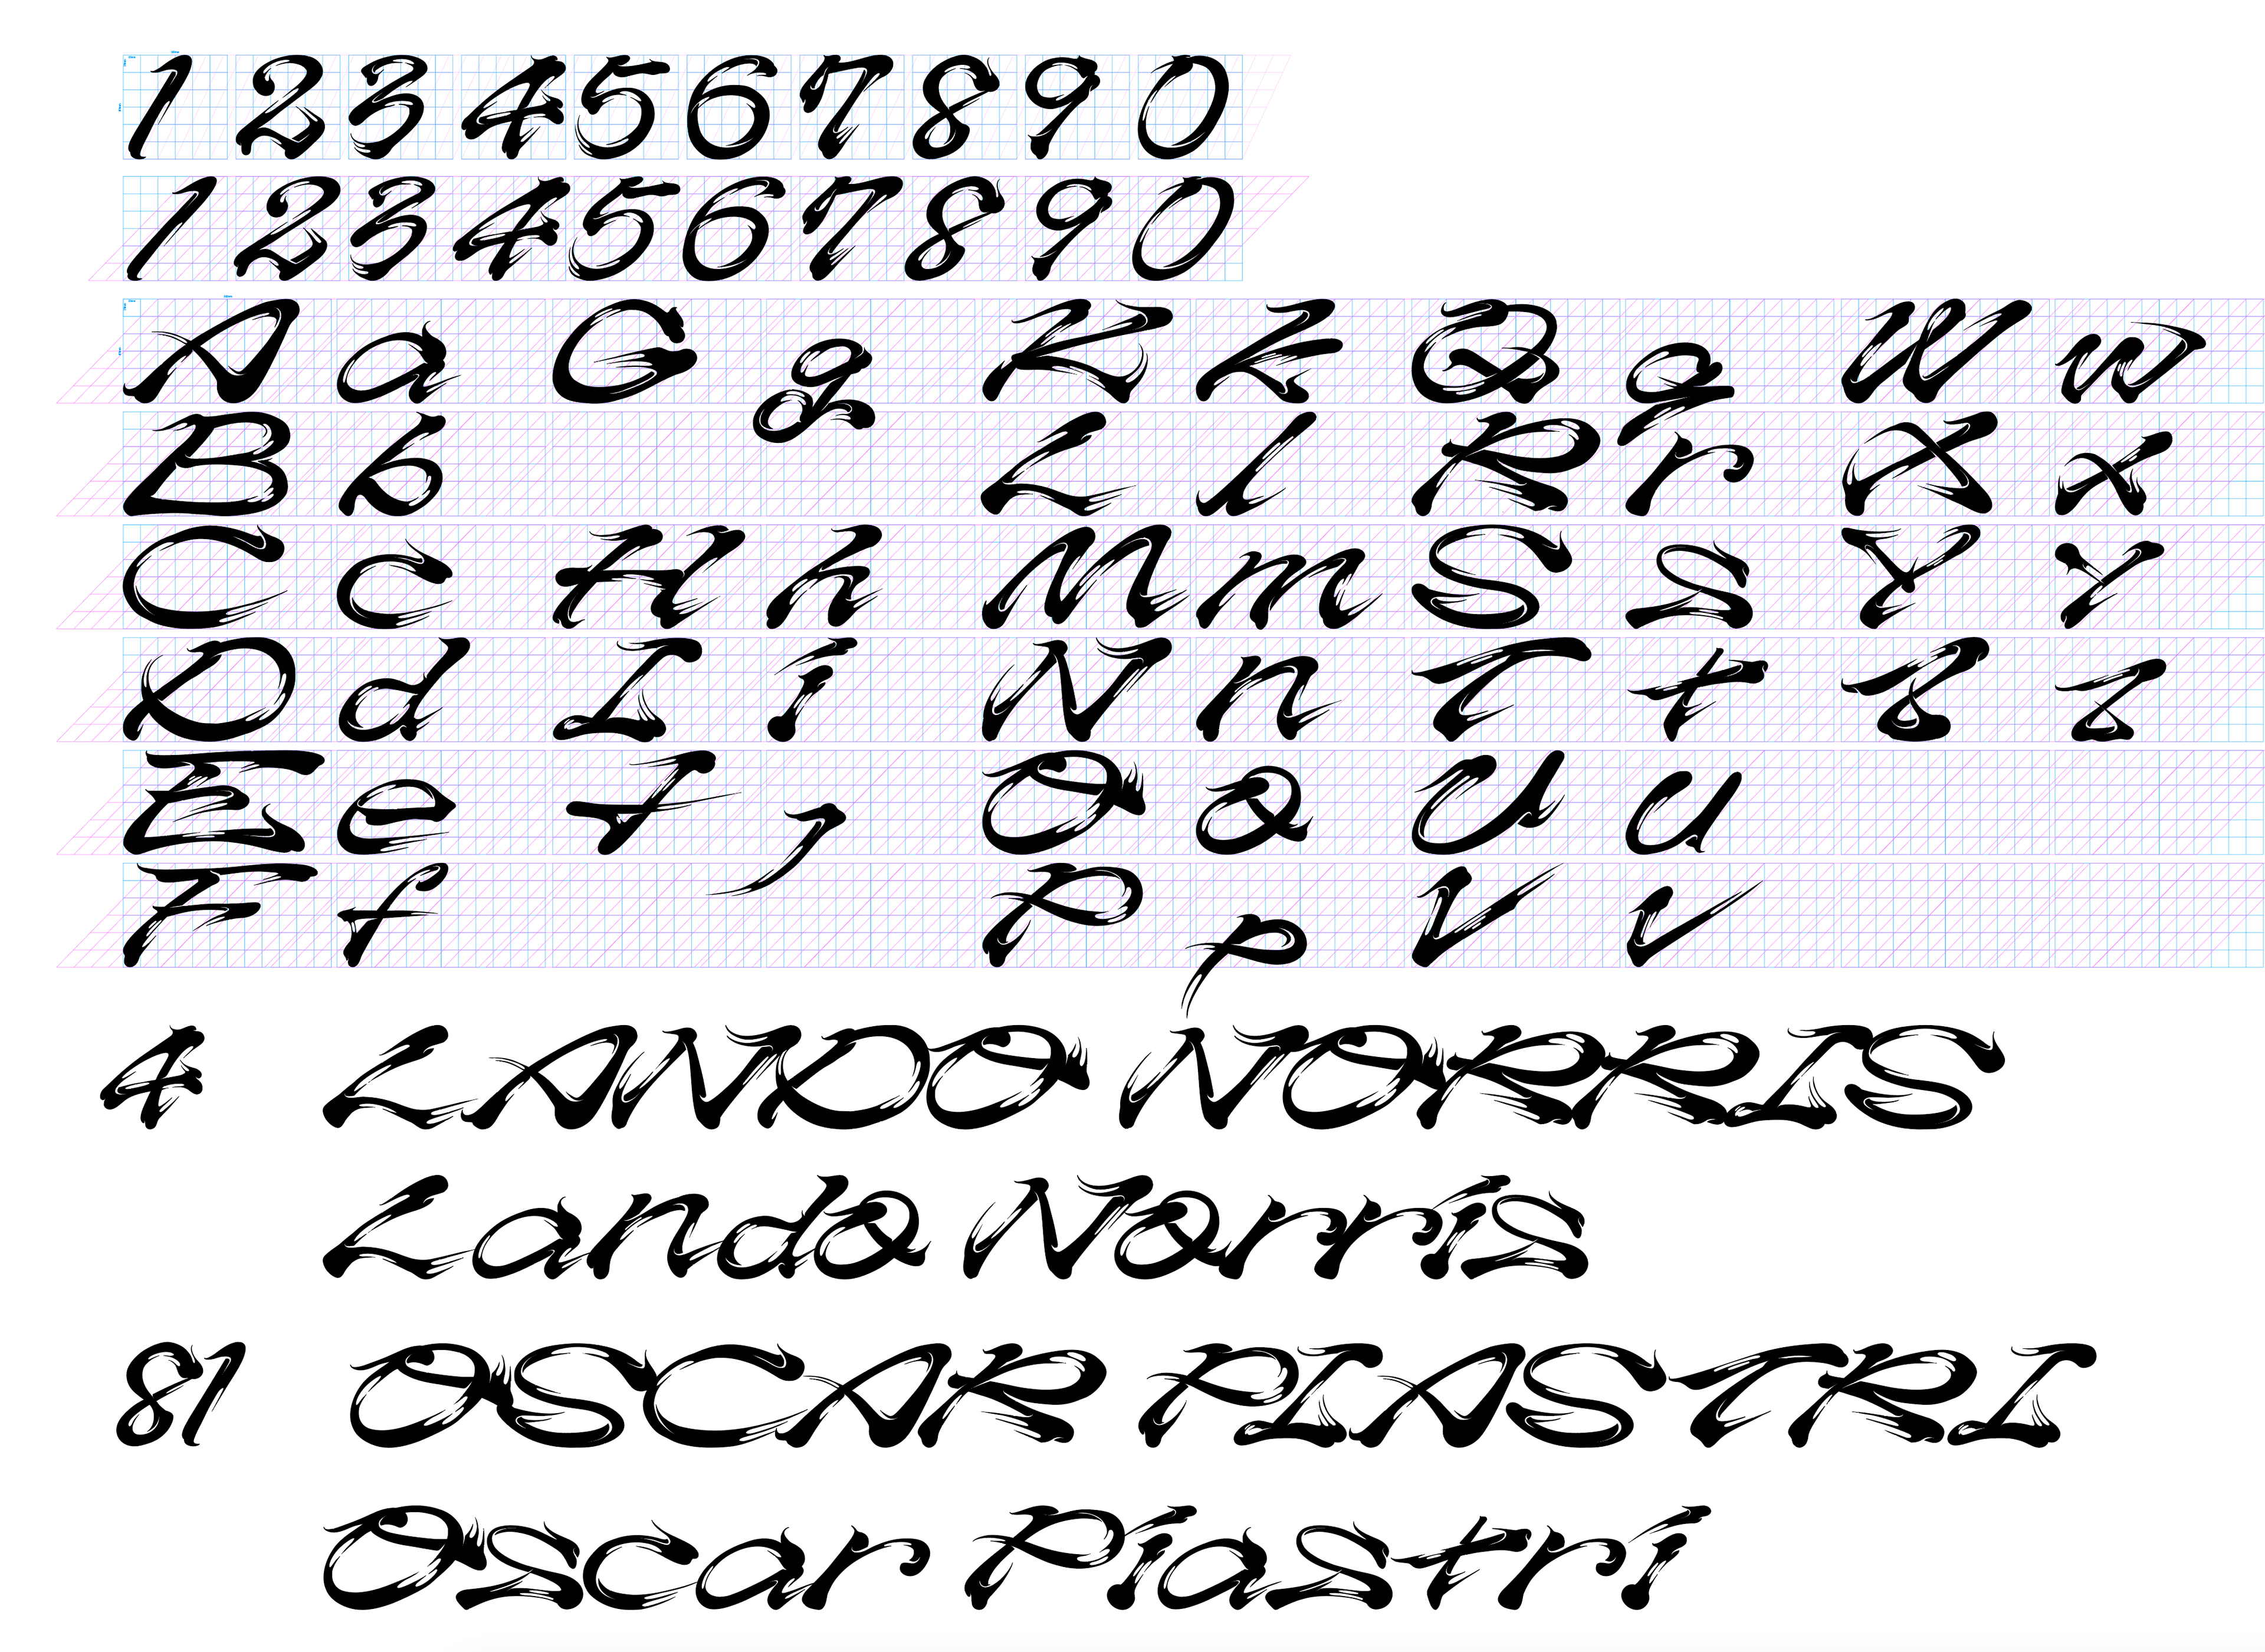 1 2 3 4 5 6 7 8 9 0
1 2 3 4 5 6 7 8 9 0
A a G g K k Q q W w
B b L l R r X x
C c H h M m S s Y y
D d I i N n T t Z z
E e J j O o U u
F f P p V v
4 LANDO NORRIS
Lando Norris
81 OSCAR PIASTRI
Oscar Piastri